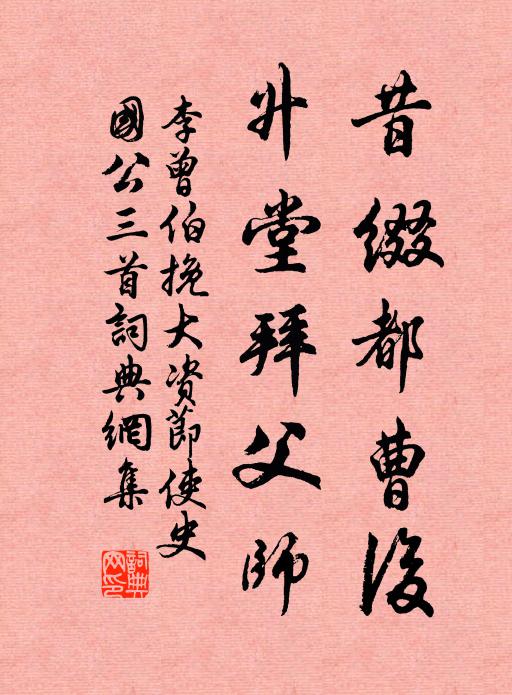 昔綴都曹後
升堂拜父師
李曾伯挽大資節使史
國公三首詞典網集
詞典網印